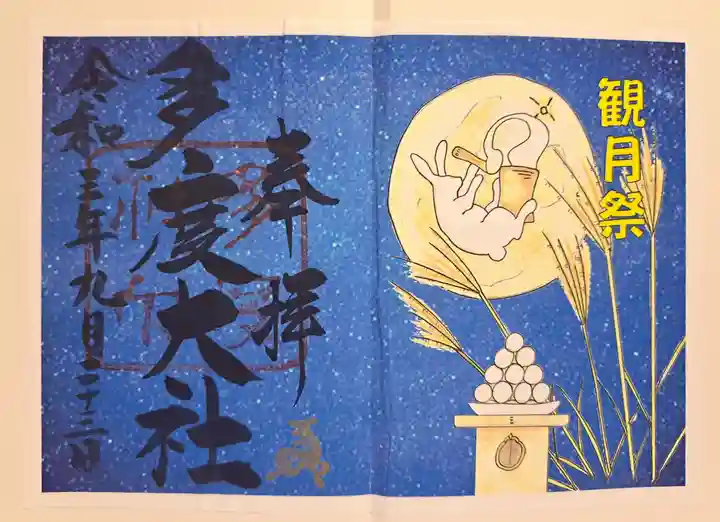 観月祭
奉拝
多度大社
令和三年九月二十三日